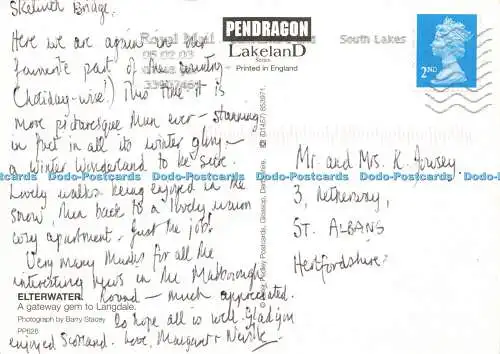 Skelwith Bridge.
Here we are again in our
favourite part of the country
(holiday-wise!) This time it is
more picturesque than ever – stunning
in fact in all its winter glory –
a winter wonderland to be sure.
Lovely walks being enjoyed in the
snow, then back to a lovely warm
cosy apartment – just the job!
Very many thanks for all the
interesting news in the Marlborough
Round – much appreciated.
So hope all is well. Glad you
enjoyed Scotland. Love, Margaret & Neville
ELTERWATER
A gateway gem to Langdale.
Photograph by Barry Stacey
PP626
Royal Mail
05 02 03
South Lakes
PENDRAGON
LakelanD
Series
Printed in England
Postcards, Glossop, Derbyshire. © (01457) 853971.
2ND
Mr and Mrs. K.
3,
ST. ALBANS
Hertfordshire
www.hippostcard.com